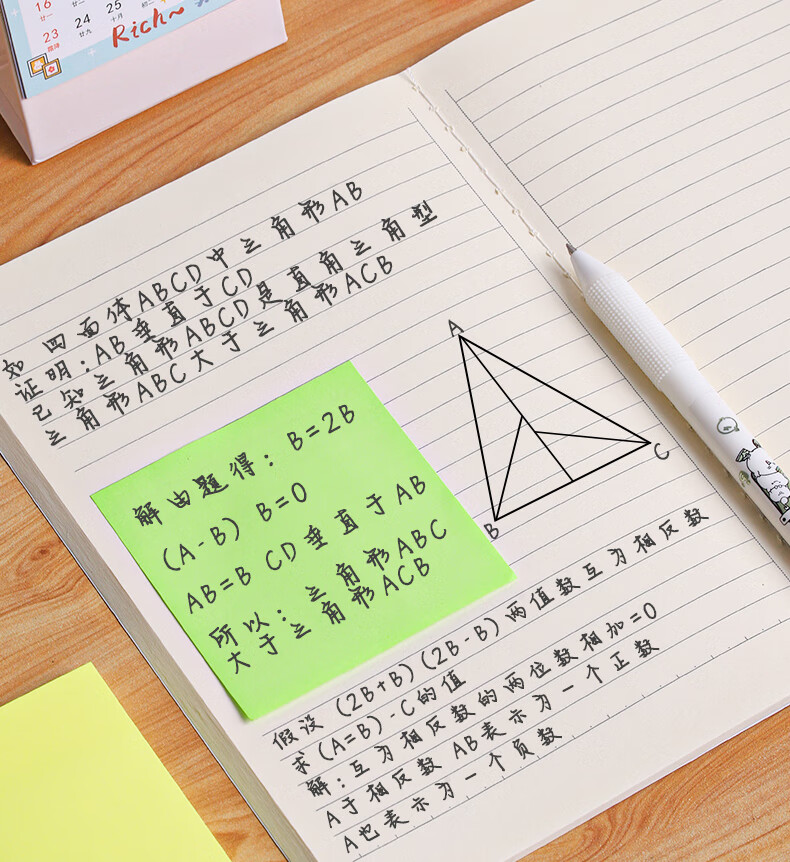 16
廿一
23
24
廿九
25
十月
初二
Rich~
如四面体ABCD中三角形AB
证明:AB垂直于CD
已知三角形ABCD是直角三角型
三角形ABC大于三角形ACB
A
C
B
解由题得: B=2B
(A-B) B=0
AB=B CD垂直于AB
所以: 三角形ABC
大于三角形ACB
假设 (2B+B)(2B-B) 两值数互为相反数
求(A=B)-C的值
解:互为相反数的两位数相加=0
A于相反数 AB表示为一个正数
A也表示为一个负数